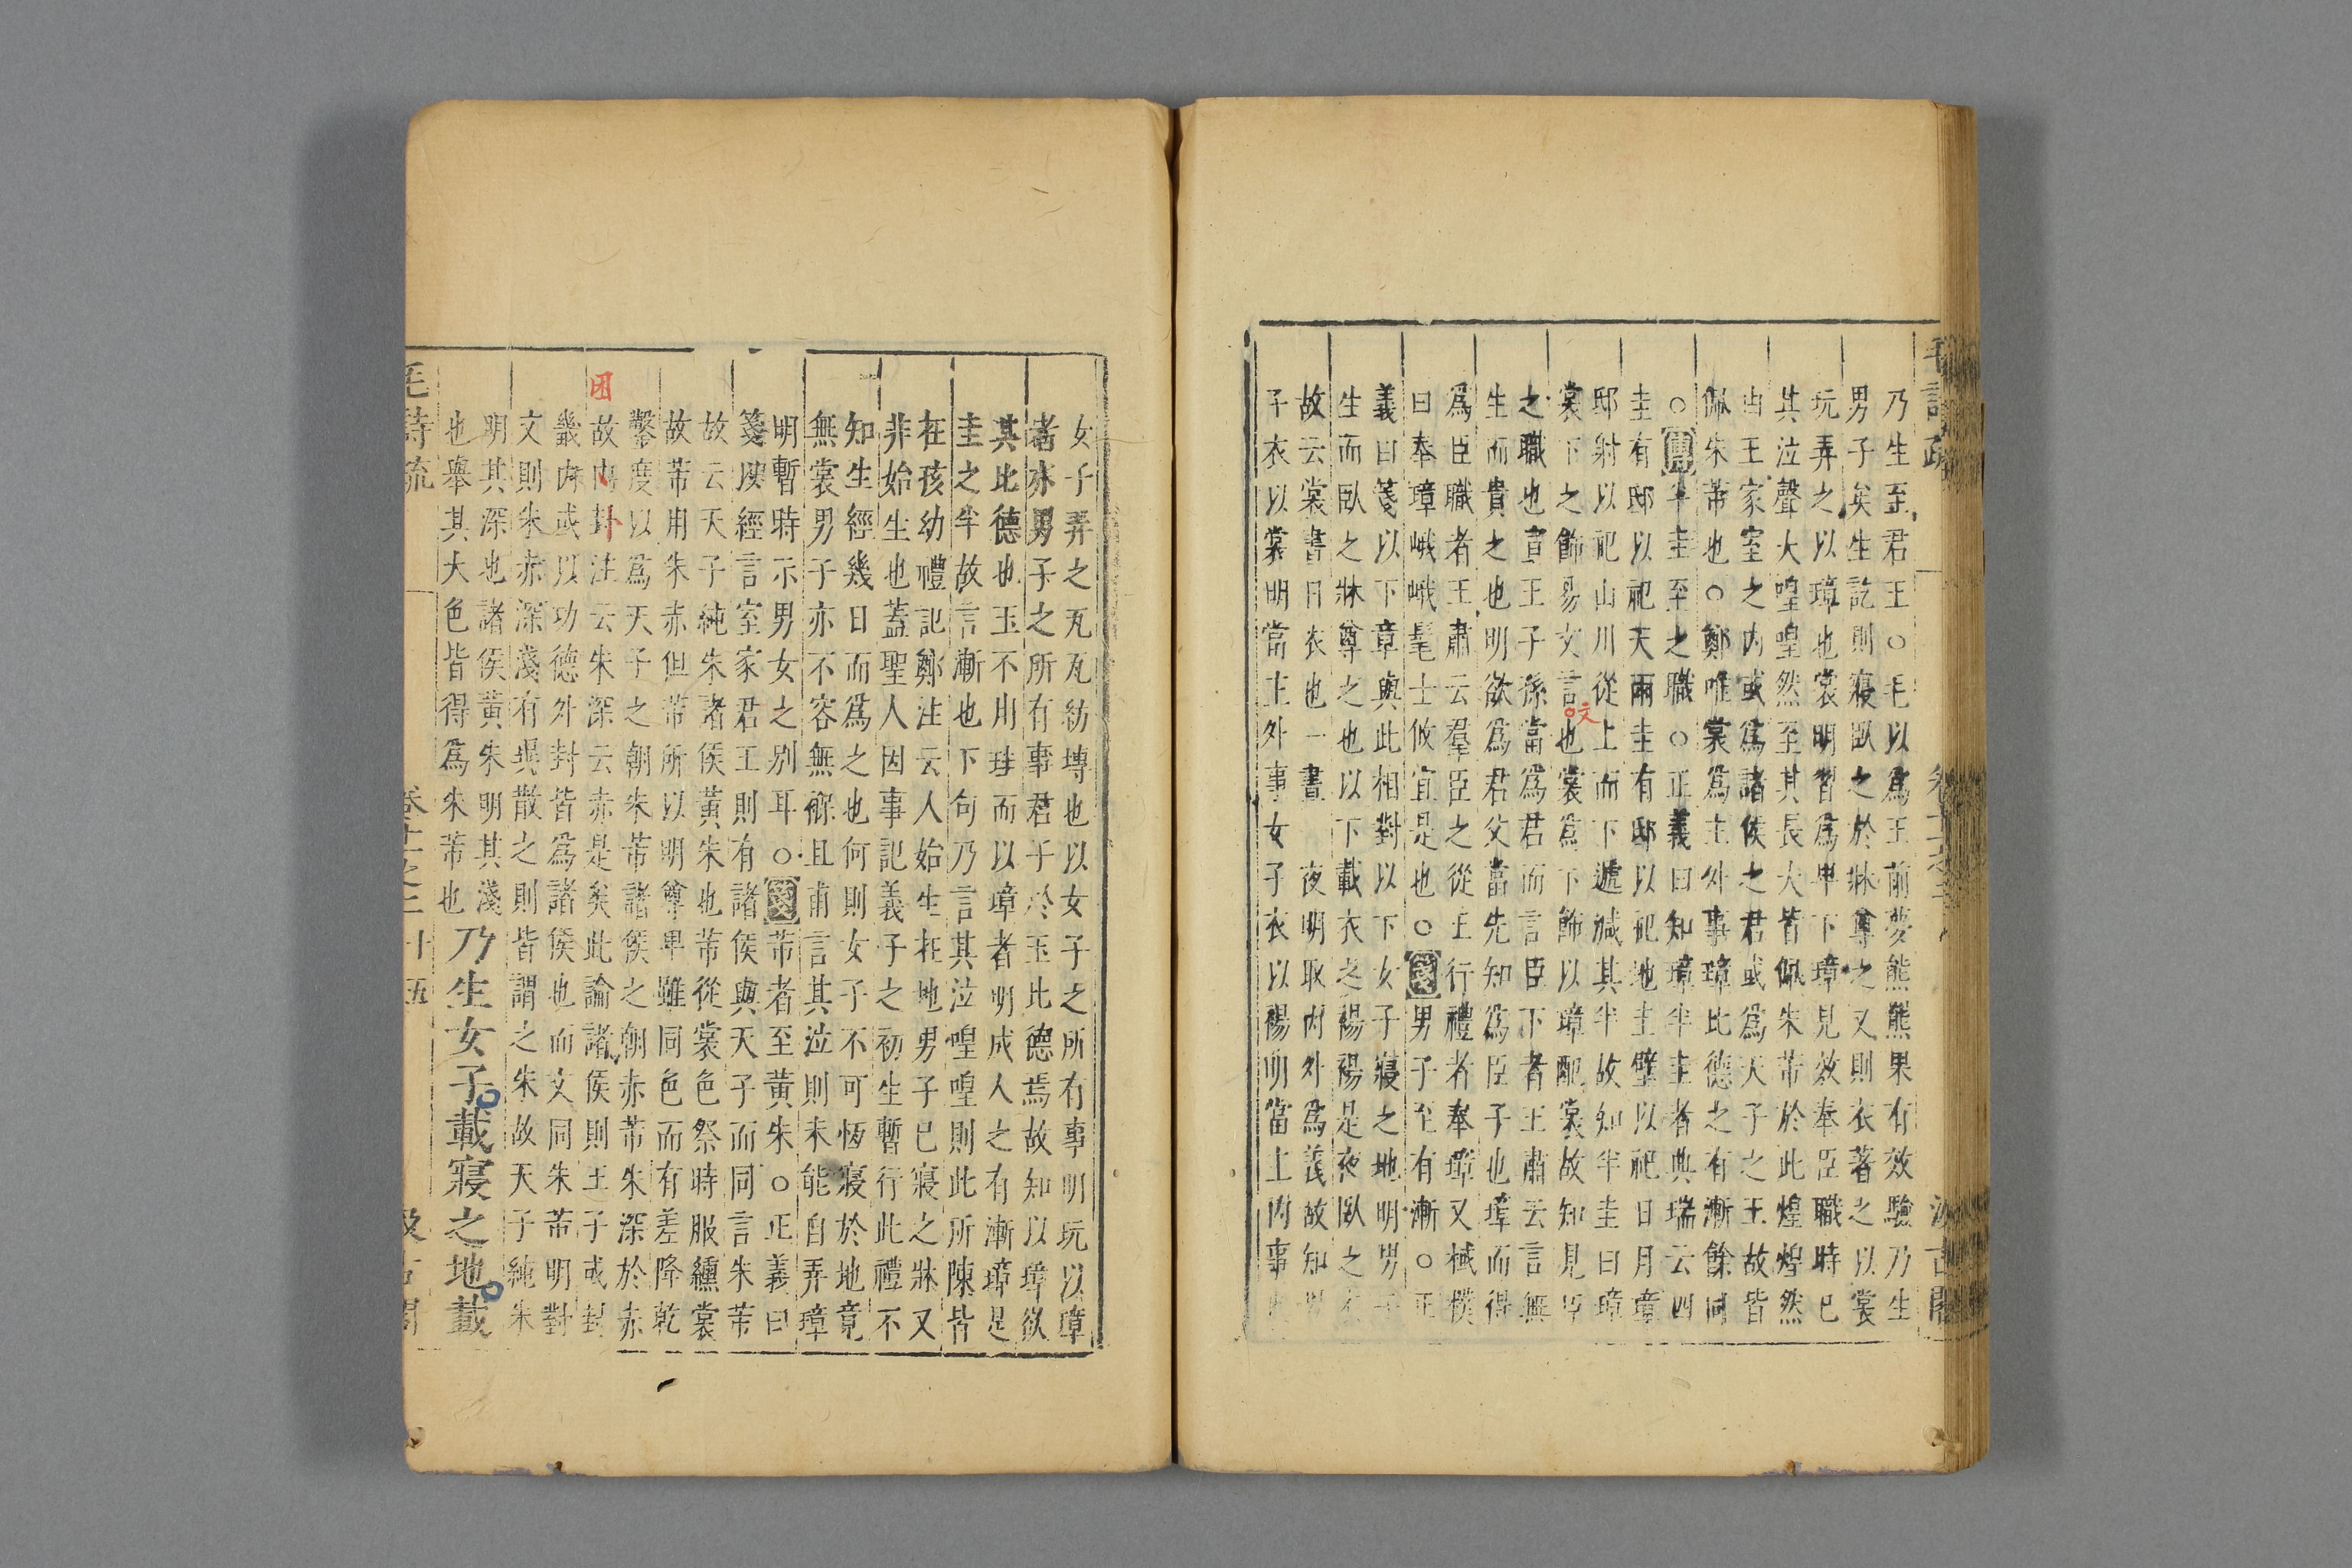 乃生至君王○毛以爲王前夢熊羆果有效驗乃生
男子矣生訖則寢臥之於牀尊之又則衣著之以裳
玩弄之以璋也裳明習爲卑下璋見效奉臣職時已
其泣聲大喤喤然至其長大皆佩朱芾於此煌煌然
由王家室之內或爲諸侯之君或爲天子之王故皆
佩朱芾也○鄭唯裳爲主外事璋比德之有漸餘同
○傳半圭至之職○正義曰知璋半圭者典瑞云四
圭有邸以祀天兩圭有邸以祀地圭璧以祀日月璋
邸射以祀山川從上而下遞減其半故知半圭曰璋
裳下之飾易文言也裳爲下飾以璋配裳故知見臣
之職也言王子孫當爲君而言臣下者王肅云言無
生而貴之也明欲爲君父當先知爲臣子也璋而得
爲臣職者王肅云羣臣之從王行禮者奉璋又棫樸
曰奉璋峨峨髦士攸宜是也○箋男子至有漸○正
義曰箋以下章與此相對以下女子寢之地明男子
生而臥之牀尊之也以下載衣之裼裼是夜臥之衣
故云裳晝日衣也一晝一夜明取內外爲義故知男
子衣以裳明當主外事女子衣以裼明當主內事
毛詩疏
卷十一之二
汲古閣
女子弄之瓦瓦紡塼也以女子之所有事明玩以璋
者亦男子之所有事君子於玉比德焉故知以璋欲
其比德也玉不用珪而以璋者明成人之有漸璋是
圭之半故言漸也下句乃言其泣喤喤則此所陳皆
在孩幼禮記鄭注云人始生在地男子已寢之牀又
非始生也蓋聖人因事記義子之初生暫行此禮不
知生經幾日而爲之也何則女子不可恆寢於地竟
無裳男子亦不容無褓且甫言其泣則未能自弄璋
明暫時示男女之別耳○箋芾者至黃朱○正義曰
箋以經言室家君王則有諸侯與天子而同言朱芾
故云天子純朱諸侯黃朱也芾從裳色祭時服纁裳
故芾用朱赤但芾所以明尊卑雖同色而有差降乾
鑿度以爲天子之朝朱芾諸侯之朝赤芾朱深於赤
困
故困卦注云朱深云赤是矣此論諸侯則王子或封
畿內或以功德外封皆爲諸侯也而文同朱芾明對
文則朱赤深淺有異散之則皆謂之朱故天子純朱
明其深也諸侯黃朱明其淺
也舉其大色皆得爲朱芾也乃生女子載寢之地載
毛詩疏
卷十一之二
十五
汲古閣